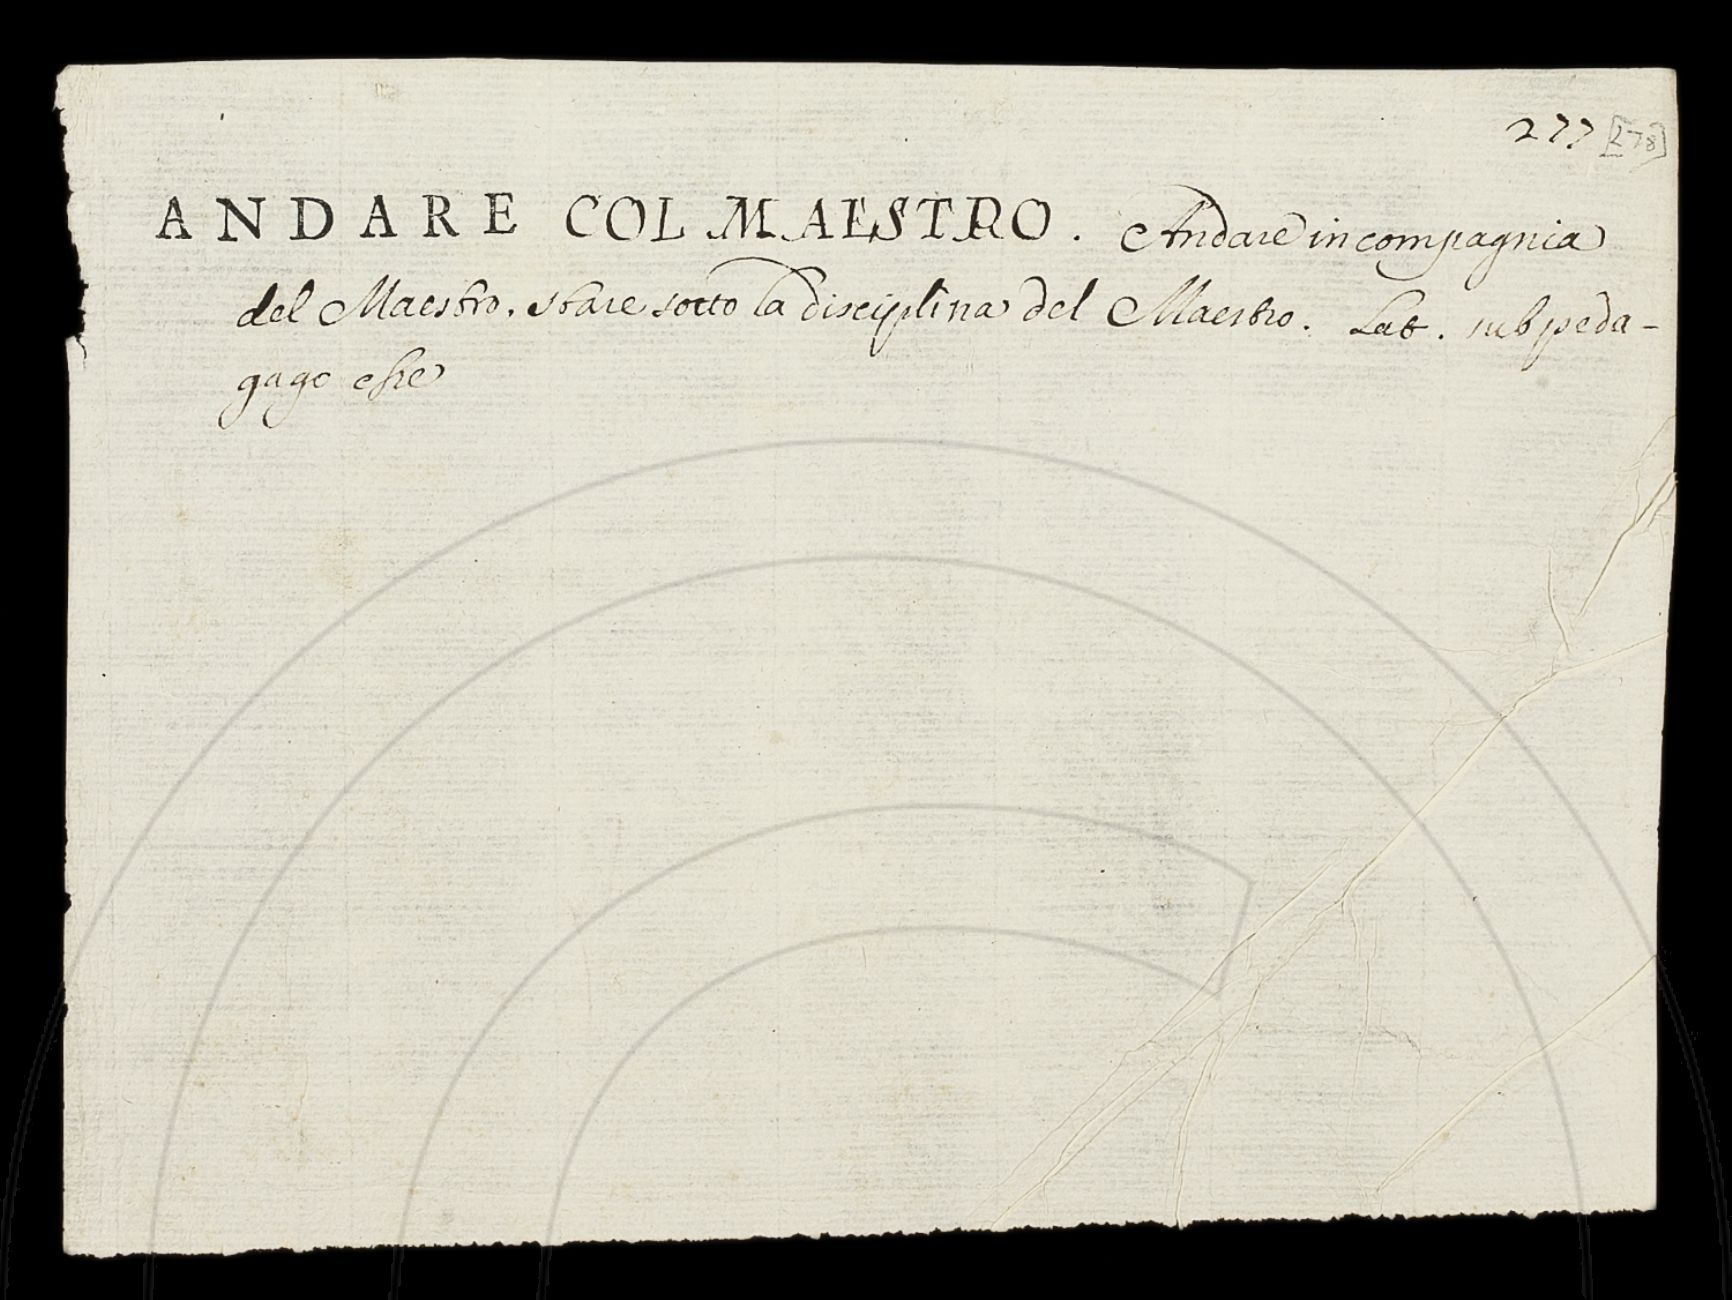 277 [278]
ANDARE COL MAESTRO. Andare in compagnia
del Maestro. stare sotto la disciplina del Maestro. Lat. sub peda-
gago esse